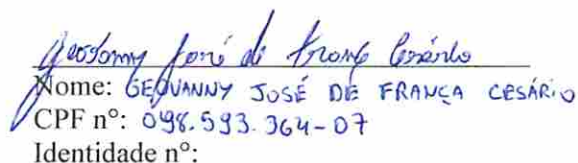 Geovanny José de França Cesário
Nome: GEOVANNY JOSÉ DE FRANÇA CESÁRIO
CPF n°: 098.593.364-07
Identidade n°: